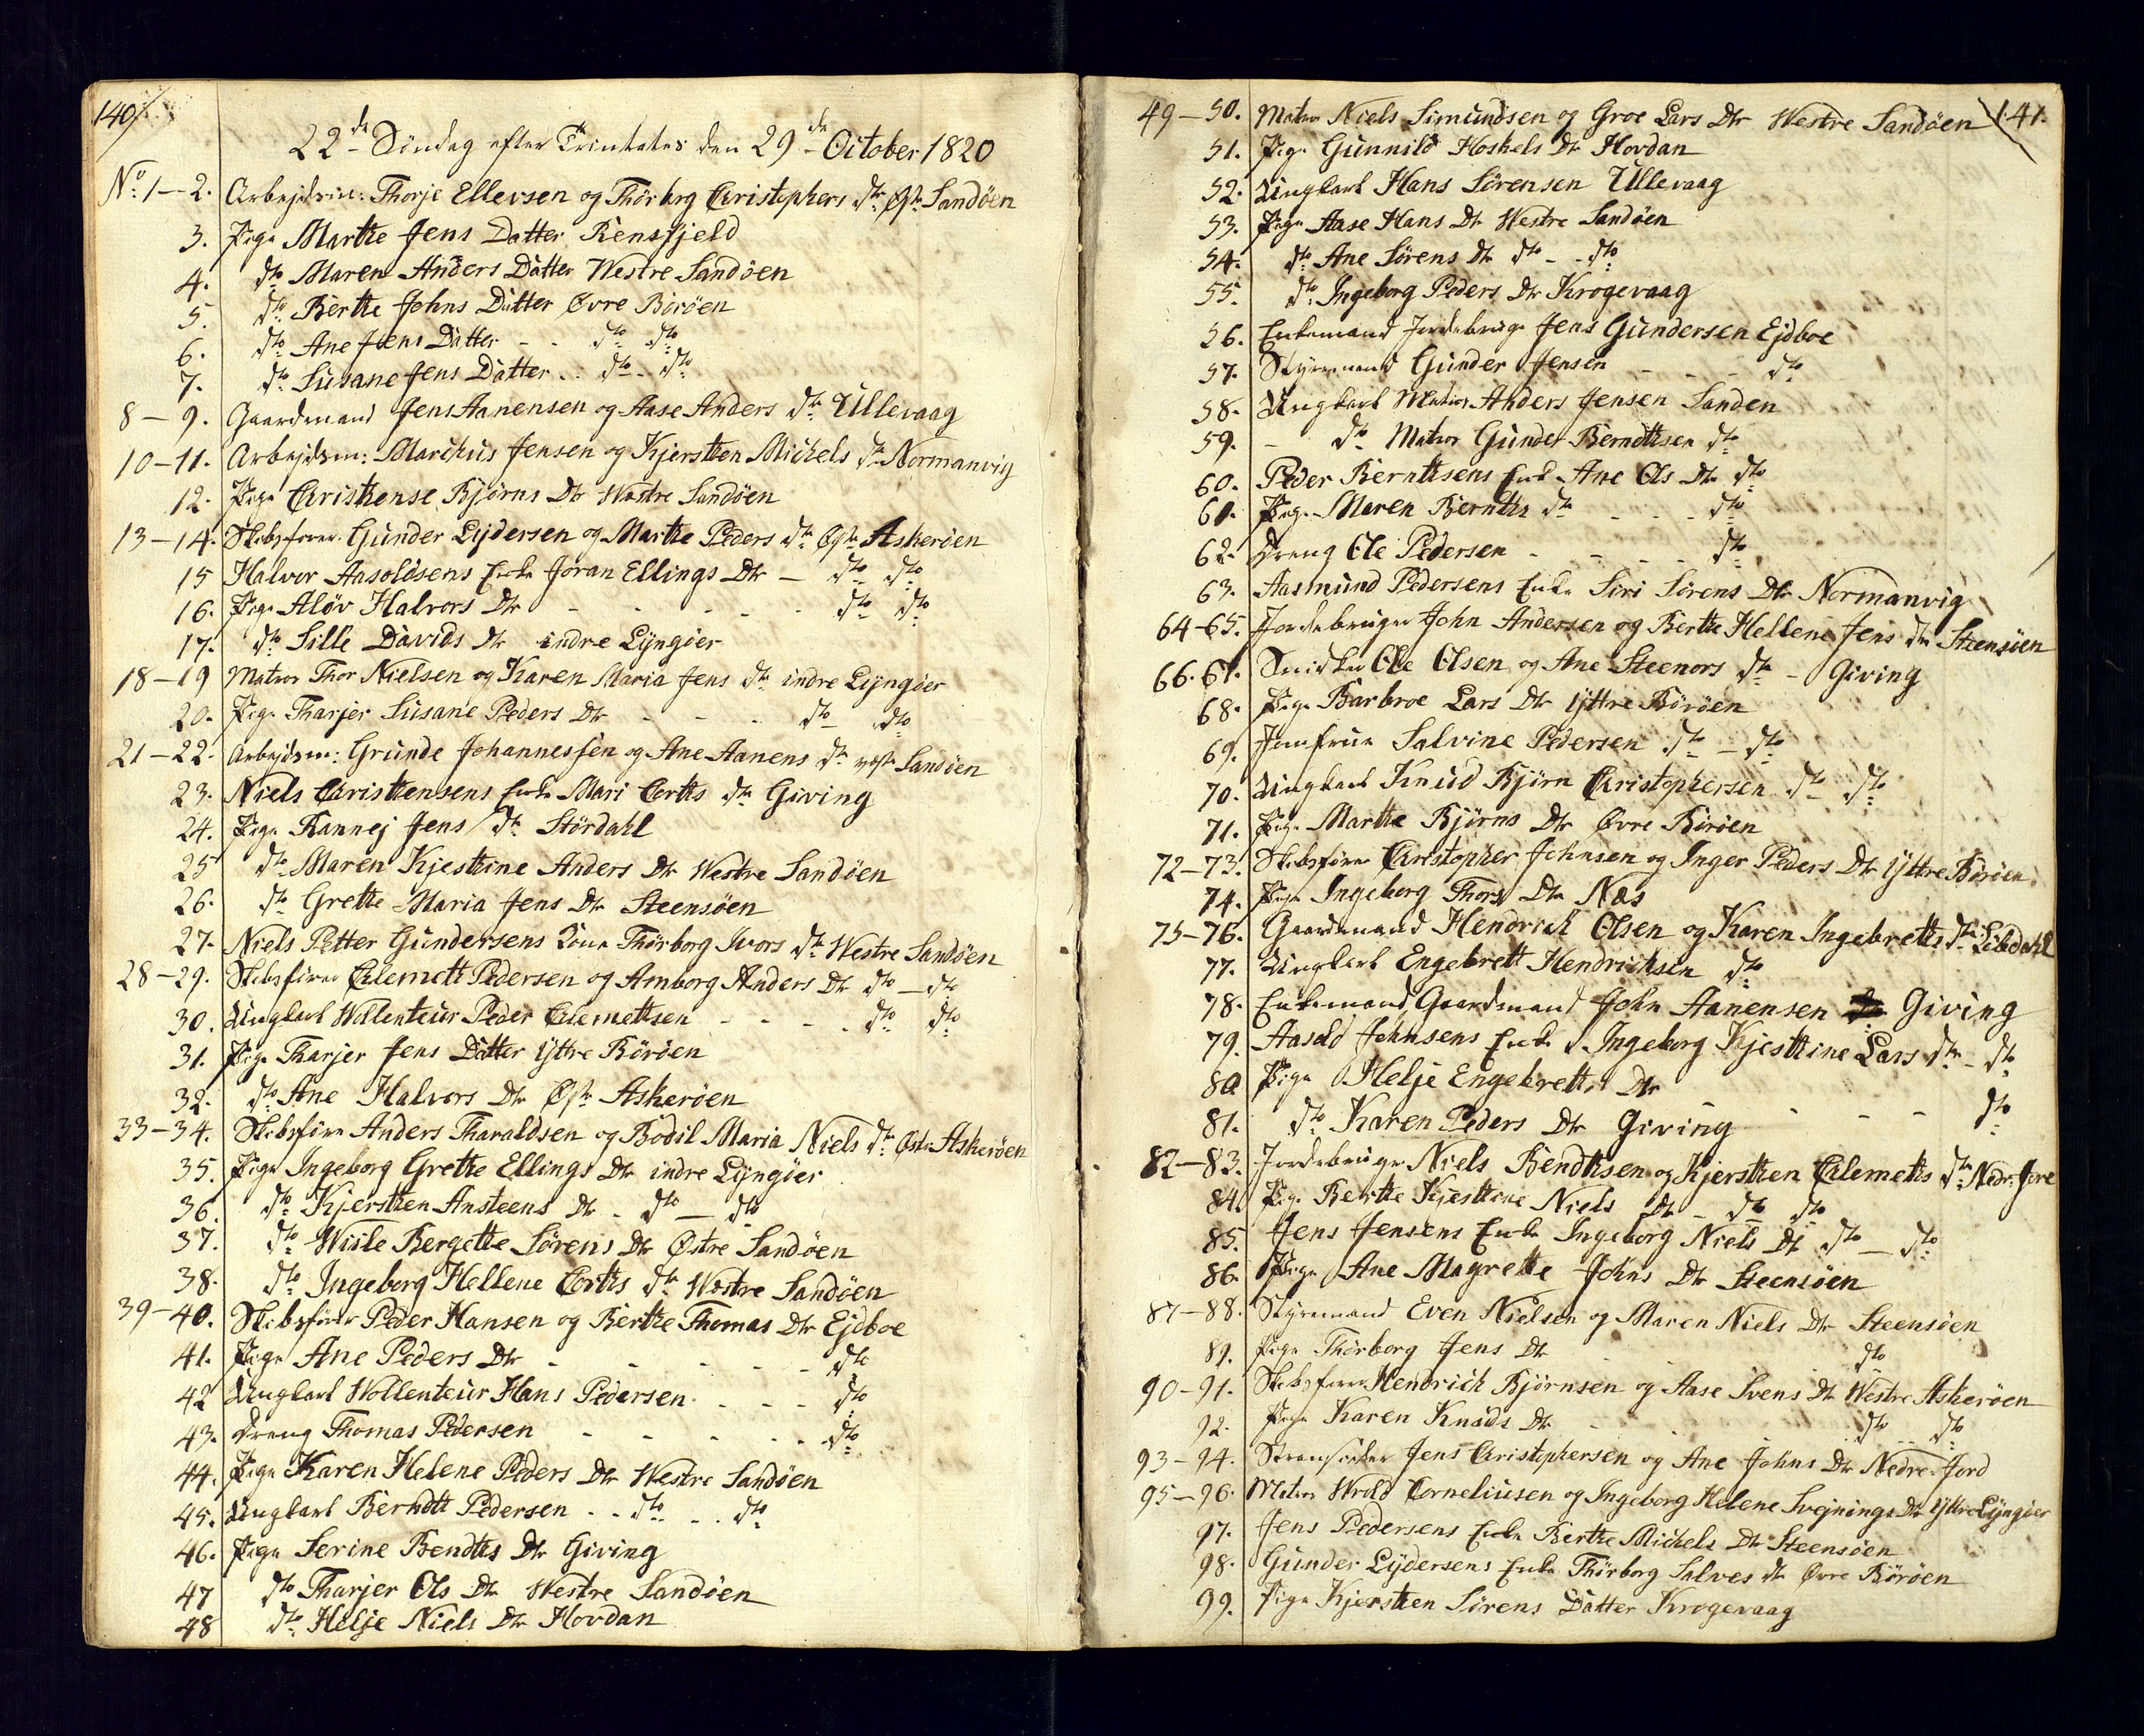 140/
22de Söndag efter Trinitates den 29de October 1820
No. 1-2. Arbejdsm: Thorje Ellevsen og Thörberg Christophers dtr. Øst. Sandöen
3. Pige Marthe Jens Datter Rensfjeld
4. dto Maren Anders Datter Westre Sandöen
5. dto Berthe Johns Datter Øvre Boröen
6. dto Ane Jens Datter - - dto dto
7. dto Susane Jens Datter - - dto - dto
8-9. Gaardmand Jens Aanensen og Aase Anders dtr Ullevaag
10-11. Arbejdsm: Marckus Jensen og Kjersthen Mickels dtr Normanvig
12. Pige Christhense Björns Dtr Westre Sandöen
13-14. Skibsförer Gunder Lydersen og Marthe Peders dtr Øst. Askeröen
15 Halvor Aasoldsens Enke Joran Ellings Dtr - dto dto
16. Pige Alöv Halvors Dtr - - - - - dto dto
17. dto Sille Davids dtr indre Lyngöer
18-19 Matros Thor Nielsen og Karen Maria Jens dtr indre Lyngöer
20. Pige Tharjer Susane Peders Dtr - - - dto dto
21-22. Arbejdsm: Grunde Johannesen og Ane Aanens dtr vest. Sandöen
23. Niels Christhensens Enke Mari Corths dtr Giving
24. Pige Kannej Jens dtr Stördahl
25 dto Maren Kjesthine Anders Dtr Westre Sandöen
26. dto Grethe Maria Jens Dtr Steensöen
27. Niels Petter Gundersens Kone Thörborg Ivors dtr Westre Sandöen
28-29. Skibsförer Clemeth Pedersen og Amborg Anders Dtr dto - dto
30. Ungkarl Wollenteur Peder Clemethsen - - - - dto dto
31. Pige Tharjer Jens Datter Yttre Böröen
32. dto Ane Halvors Dtr Øst. Askeröen
33-34. Skibsförer Anders Tharaldsen og Bodil Maria Niels dtr Øst: Askeröen
35. Pige Ingeborg Grethe Ellings Dtr indre Lyngöer
36. dto Kjersthen Ansteens Dtr - dto - dto
37. dto Wisle Bergette Sörens Dtr Østre Sandöen
38. dto Ingeborg Hellene Corths dtr Westre Sandöen
39-40. Skibsförer Peder Hansen og Berthe Thomas Dtr Ejdboe
41. Pige Ane Peders Dtr - - - - - dto
42 Ungkarl Wollenteur Hans Pedersen - - - dto
43. Dreng Thomas Pedersen - - - - - dto
44. Pige Karen Helene Peders Dtr Westre Sandöen
45. Ungkarl Berndt Pedersen - - dto - - dto
46. Pige Serine Bendths Dtr Giving
47 dto Tharjer Ols Dtr Westre Sandöen
48 dto Helje Niels Dtr Hovdan
141.
49-50. Matros Niels Simundsen og Groe Lars Dtr Westre Sandöen
51. Pige Gunnild Hoskels Dtr Hovdan
52. Ungkarl Hans Sörensen Ullevaag
53. Pige Aase Hans Dtr Westre Sandöen
54. dto Ane Sörens Dtr dto - - dto
55. dto Ingeborg Peders Dtr Krogevaag
56. Enkemand Jordebruger Jens Gundersen Ejdboe
57. Styremand Gunder Jensen - - - dto
58. Ungkarl Matros Anders Jensen Sanden
59. - dto Matros Gunder Berndthsen dto
60. Peder Bernthsens Enke Ane Ols Dtr dto
61. Pige Maren Bernths dtr - - - dto
62. Dreng Ole Pedersen - - - - dto
63. Aasmund Pedersens Enke Siri Sörens Dtr Normanvig
64-65. Jordebruger John Andersen og Berthe Hellene Jens dtr Steensöen
66.67. Snidker Ole Olsen og Ane Steenors dtr - Giving
68. Pige Barbroe Lars Dtr Yttre Böröen
69. Jomfrue Salvine Pedersen dto - dto
70. Ungkarl Knud Björn Christophersen dto dto
71. Pige Marthe Björns Dtr Øvre Böröen
72-73. Skibsförer Christopher Johnsen og Inger Peders Dtr Yttre Böröen
74. Pige Ingeborg Thors Dtr Næs
75-76. Gaardmand Hendrich Olsen og Karen Ingebreths dtr Libdahl
77. Ungkarl Engebrett Hendrichsen dto
78. Enkemand Gaardmand John Aanensen Giving
79. Aasold Johnsens Enke Ingeborg Kjesthine Lars dtr - dto
80. Pige Helje Engebretts Dtr - - - - dto
81. dto Karen Peders Dtr Giving
82-83. Jordebruger Niels Bendthsen og Kjersthen Clemeths dtr Nedr: Jore
84. Pige Berthe Kjesthine Niels Dtr - dto dto
85. Jens Jensens Enke Ingeborg Niels Dtr dto - dto
86. Pige Ane Magrethe Johns Dtr Steensöen
87-88. Styremand Even Nielsen og Maren Niels Dtr Steensöen
89. Pige Thörborg Jens Dtr - - - dto
90-91. Skibsförer Hendrich Björnsen og Aase Svens Dtr Westre Askeröen
92. Pige Karen Knuds Dtr - - - dto dto
93-94. Jens Christophersen og Ane Johns Dtr Nedre Jord
95-96. Matros Wrold Corneliusen og Ingeborg Helene Svejnings Dtr Yttre Lyngöer
97. Jens Pedersens Enke Berthe Mickels Dtr Steensöen
98. Gunder Lydersens Enke Thörborg Salves dtr Øvre Böröen
99. Pige Kjersthen Sörens Datter Krogevaag